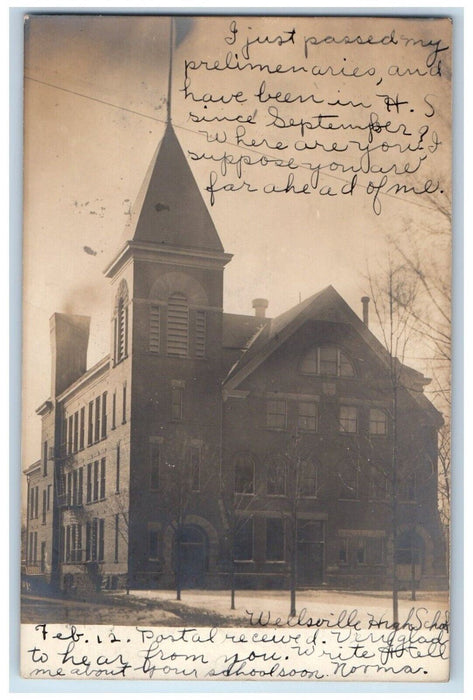 I just passed my
prelimenaries, and
have been in H. S
since September?
Where are you. I
suppose you are
far ahead of me.
Wellsville High School
Feb. 12. Portal received. Very glad
to hear from you. Write & tell
me about your school soon. Norma.